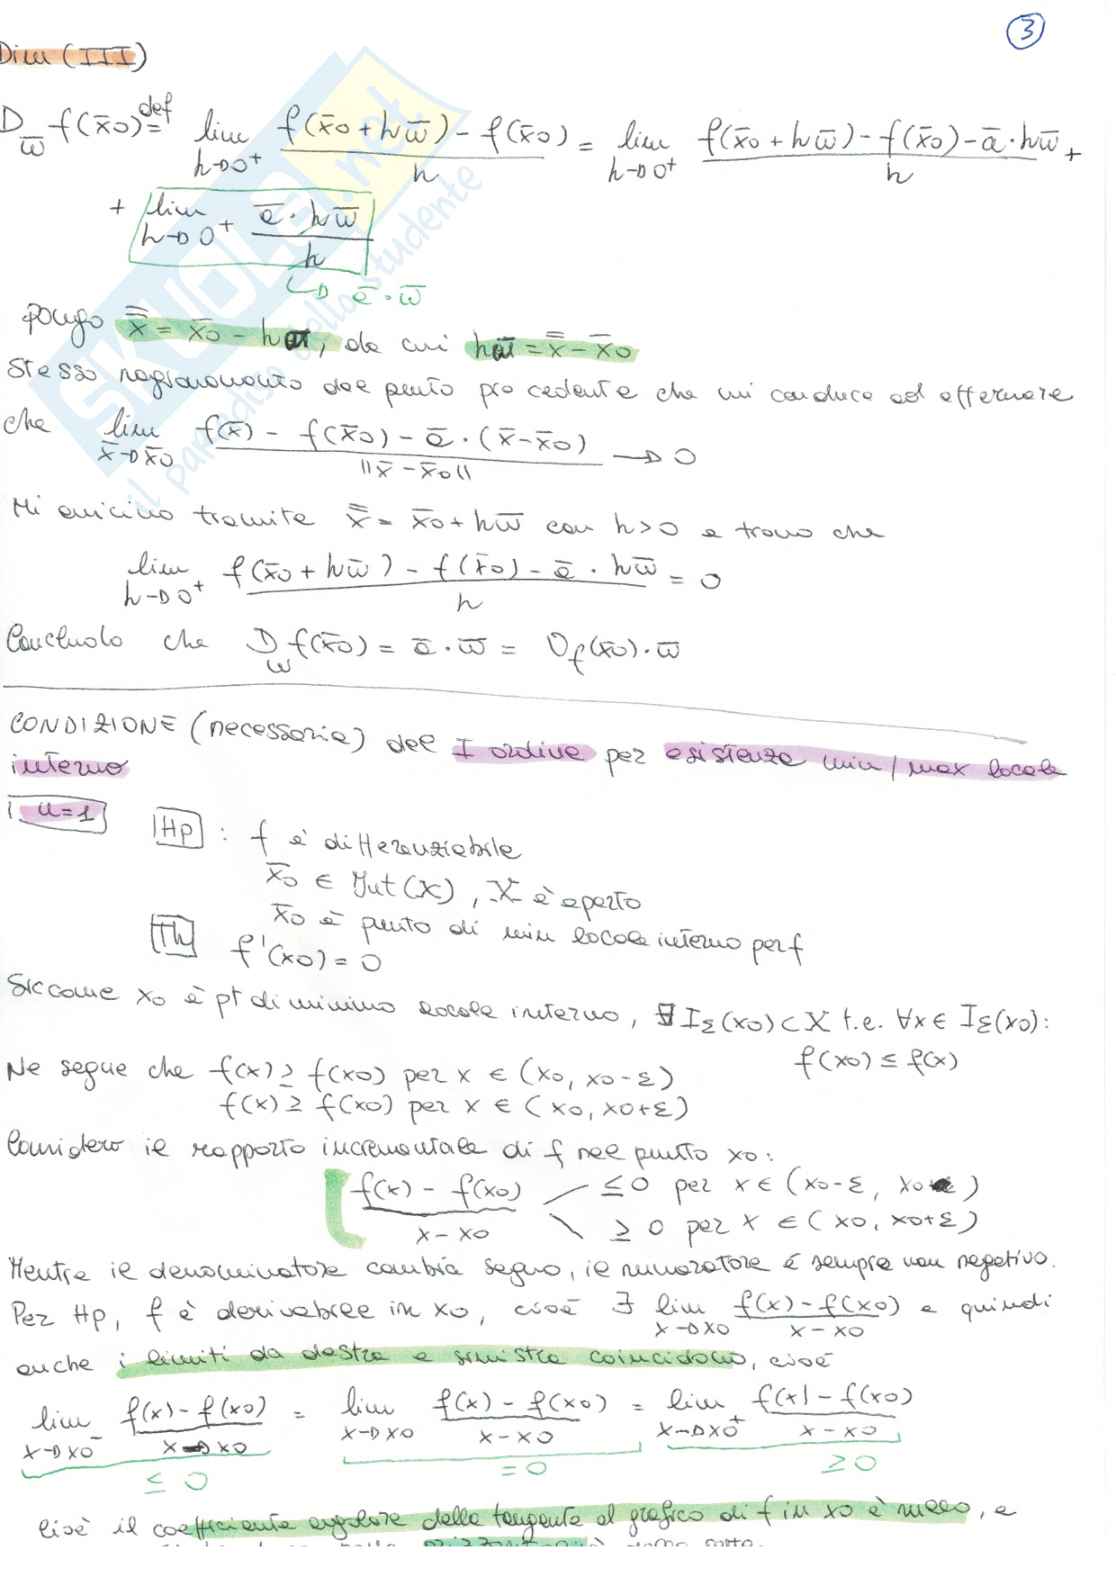 3
Dim (III)
D_w̄ f(x̄0) =def lim h→0⁺ (f(x̄0 + hw̄) - f(x̄0))/h = lim h→0⁺ (f(x̄0 + hw̄) - f(x̄0) - ā·hw̄)/h +
+ lim h→0⁺ (ā·hw̄)/h
↳ ā·w̄
pongo x̿ = x̄0 - h, da cui h = x̿ - x̄0
Stesso ragionamento del punto precedente che mi conduce ad affermare
che lim x̄→x̄0 (f(x̄) - f(x̄0) - ā·(x̄-x̄0))/||x̄-x̄0|| → 0
Mi avvicino tramite x̿ = x̄0 + hw̄ con h>0 e trovo che
lim h→0⁺ (f(x̄0 + hw̄) - f(x̄0) - ā·hw̄)/h = 0
Concludo che D_w f(x̄0) = ā·w̄ = ∇f(x̄0)·w̄
CONDIZIONE (necessaria) del I ordine per esistenza min/max locale
interno
n=1
Hp : f è differenziabile
x̄0 ∈ Int(X), X è aperto
x̄0 è punto di min locale interno per f
Th f'(x0) = 0
Siccome x0 è pt di minimo locale interno, ∃ Iε(x0) ⊂ X t.c. ∀x ∈ Iε(x0):
f(x0) ≤ f(x)
Ne segue che f(x) ≥ f(x0) per x ∈ (x0, x0-ε)
f(x) ≥ f(x0) per x ∈ (x0, x0+ε)
Considero il rapporto incrementale di f nel punto x0:
(f(x) - f(x0))/(x - x0) ≤0 per x ∈ (x0-ε, x0)
≥ 0 per x ∈ (x0, x0+ε)
Mentre il denominatore cambia segno, il numeratore è sempre non negativo.
Per Hp, f è derivabile in x0, cioè ∃ lim x→x0 (f(x) - f(x0))/(x - x0) e quindi
anche i limiti da destra e sinistra coincidono, cioè
lim x→x0⁻ (f(x) - f(x0))/(x - x0) = lim x→x0 (f(x) - f(x0))/(x - x0) = lim x→x0⁺ (f(x) - f(x0))/(x - x0)
≤ 0 = 0 ≥ 0
Cioè il coefficiente angolare della tangente al grafico di f in x0 è nullo, e
SKUOLA.net
il paradiso dello studente